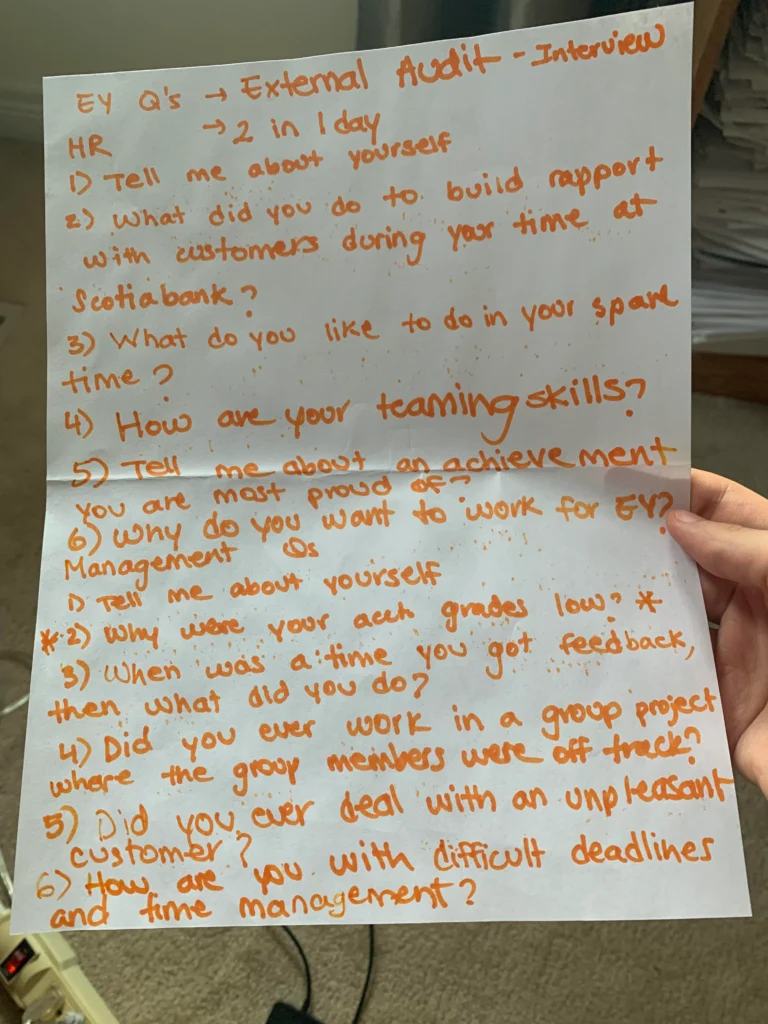 EY Q's → External Audit - Interview
HR → 2 in 1 day
1) Tell me about yourself
2) What did you do to build rapport
with customers during your time at
Scotiabank?
3) What do you like to do in your spare
time?
4) How are your teaming skills?
5) Tell me about an achievement
you are most proud of?
6) Why do you want to work for EY?
Management Qs
1) Tell me about yourself
* 2) Why were your acct grades low? *
3) When was a time you got feedback,
then what did you do?
4) Did you ever work in a group project
where the group members were off track?
5) Did you ever deal with an unpleasant
customer?
6) How are you with difficult deadlines
and time management?